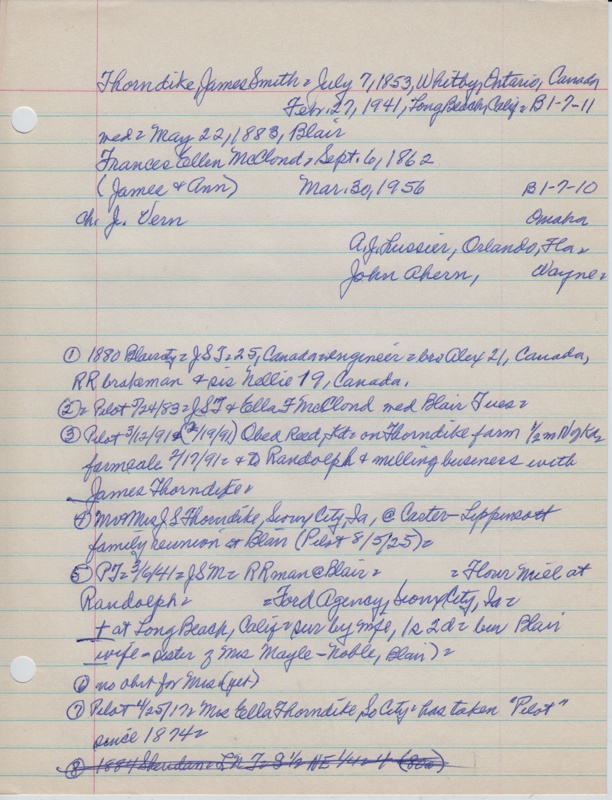 Thorndike, James Smith = July 7, 1853, Whitby, Ontario, Canada
Febr. 27, 1941, Long Beach, Calif = B1-7-11
med = May 22, 1883, Blair
Frances Ellen McClond, Sept. 6, 1862
(James & Ann) Mar. 30, 1956 B1-7-10
ch. J. Vern Omaha
A.J. Lussier, Orlando, Fla =
John Ahern, Wayne =
① 1880 Blair city = JST = 25, Canada = engineer = bro Alex 21, Canada,
RR brakeman & sis Nellie 19, Canada.
② = Pilot 5/24/83 = JST & Ella F McClond med Blair Tues =
③ Pilot 3/12/91 & (2/19/91) Obed Reed, Kd = on Thorndike farm 1/2 m N of Ka
farm sale 2/17/91 = & to Randolph & milling business with
James Thorndike =
④ Mr & Mrs J S Thorndike, Sioux City, Ia, @ Carter-Lippincott
family reunion at Blair (Pilot 8/5/25) =
⑤ PT = 3/6/41 = JSM = RR man @ Blair = = Flour Mill at
Randolph = = Ford Agency, Sioux City, Ia =
† at Long Beach, Calif = sur by wife, 1s 2d = bur Blair
wife - sister of Mrs Mayle-Noble, Blair) =
⑥ no obit for Mrs (yet)
⑦ Pilot 4/25/17 = Mrs Ella Thorndike, So City = has taken "Pilot"
since 1874 =
⑧ 1884 Sheridan = T = S 1/2 NE 1/4 = 4 (80a)